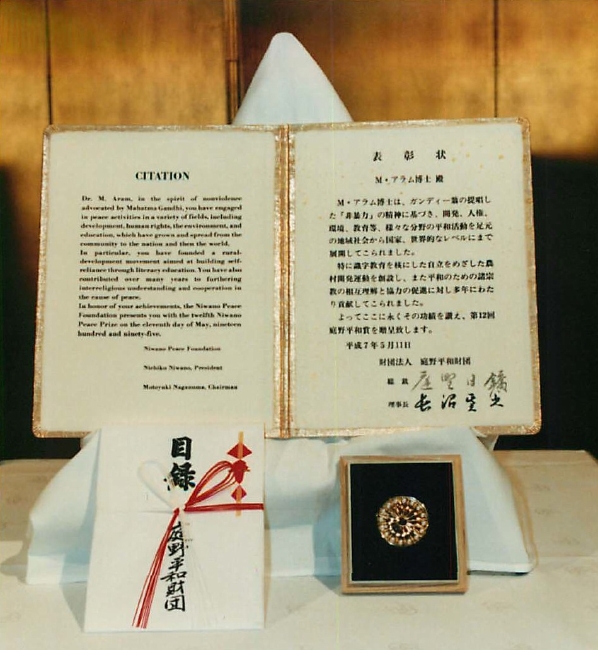 CITATION
Dr. M. Aram, in the spirit of nonviolence
advocated by Mahatma Gandhi, you have engaged
in peace activities in a variety of fields, including
development, human rights, the environment, and
education, which have grown and spread from the
community to the nation and then the world.
In particular, you have founded a rural-
development movement aimed at building self-
reliance through literacy education. You have also
contributed over many years to furthering
interreligious understanding and cooperation in
the cause of peace.
In honor of your achievements, the Niwano Peace
Foundation presents you with the twelfth Niwano
Peace Prize on the eleventh day of May, nineteen
hundred and ninety-five.
Niwano Peace Foundation
Nichiko Niwano, President
Motoyuki Naganuma, Chairman
表彰状
M・アラム博士 殿
M・アラム博士は、ガンディー翁の提唱し
た「非暴力」の精神に基づき、開発、人権、
環境、教育等、様々な分野の平和活動を足元
の地域社会から国家、世界的なレベルにまで
展開してこられました。
特に識字教育を核にした自立をめざした農
村開発運動を創設し、また平和のための諸宗
教の相互理解と協力の促進に対し多年にわた
り貢献してこられました。
よってここに永くその功績を讃え、第12回
庭野平和賞を贈呈致します。
平成7年5月11日
財団法人 庭野平和財団
総裁 庭野日鑛
理事長 長沼基之
目録
庭野平和財団